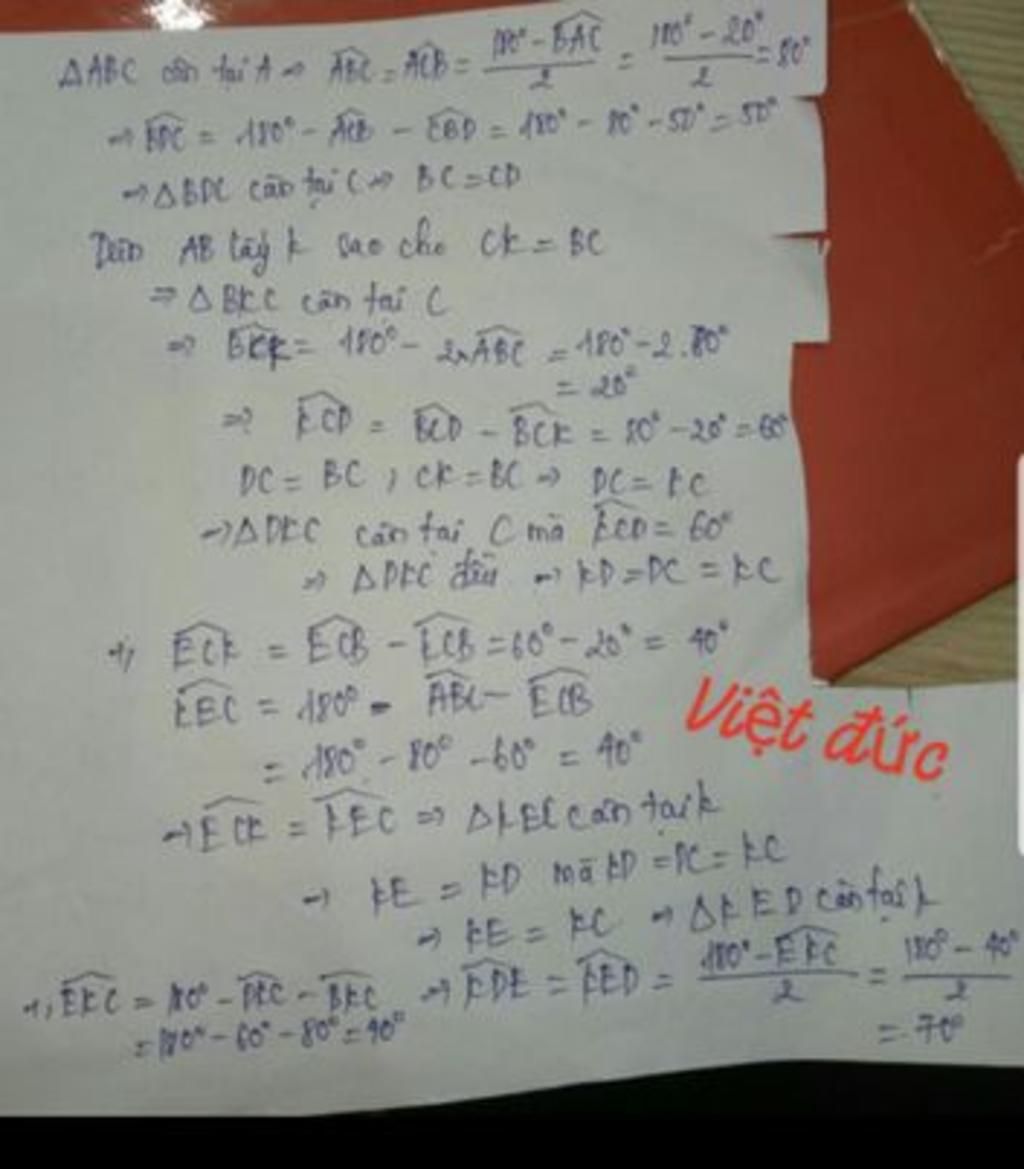 ΔABC cân tại A ⇒ ∠ABC = ∠ACB = (180° - ∠BAC)/2 = (180° - 20°)/2 = 80°
⇒ ∠BDC = 180° - ∠ACB - ∠CBD = 180° - 80° - 50° = 50°
⇒ ΔBDC cân tại C ⇒ BC = CD
Trên AB lấy K sao cho CK = BC
⇒ ΔBKC cân tại C
⇒ ∠BCK = 180° - 2.∠ABC = 180° - 2.80°
= 20°
⇒ ∠KCD = ∠BCD - ∠BCK = 80° - 20° = 60°
DC = BC ; CK = BC ⇒ DC = KC
⇒ ΔDKC cân tại C mà ∠KCD = 60°
⇒ ΔDKC đều ⇒ KD = DC = KC
+, ∠ECK = ∠ECB - ∠KCB = 60° - 20° = 40°
∠KEC = 180° - ∠ABC - ∠ECB
= 180° - 80° - 60° = 40°
Việt đức
⇒ ∠ECK = ∠KEC ⇒ ΔKEC cân tại K
⇒ KE = KD mà KD = DC = KC
⇒ KE = KC ⇒ ΔKED cân tại K
+, ∠EKC = 180° - ∠DKC - ∠BKC ⇒ ∠KDE = ∠KED = (180° - ∠EKC)/2 = (180° - 40°)/2
= 180° - 60° - 80° = 40° = 70°